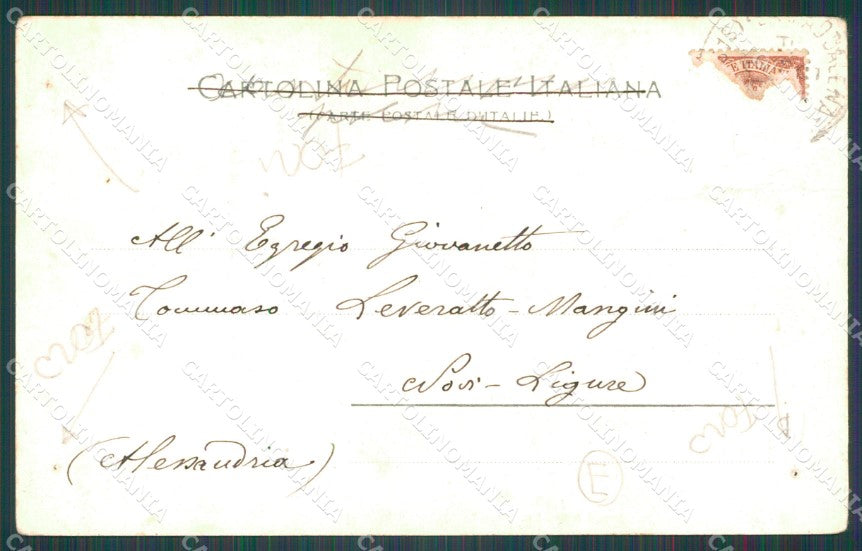 CARTOLINA POSTALE ITALIANA
(CARTE POSTALE D'ITALIE)
E ITALIAN
All' Egregio Giovanetto
Tommaso Leveratto - Mangini
Novi - Ligure
(Alessandria)
E
CARTOLINOMANIA